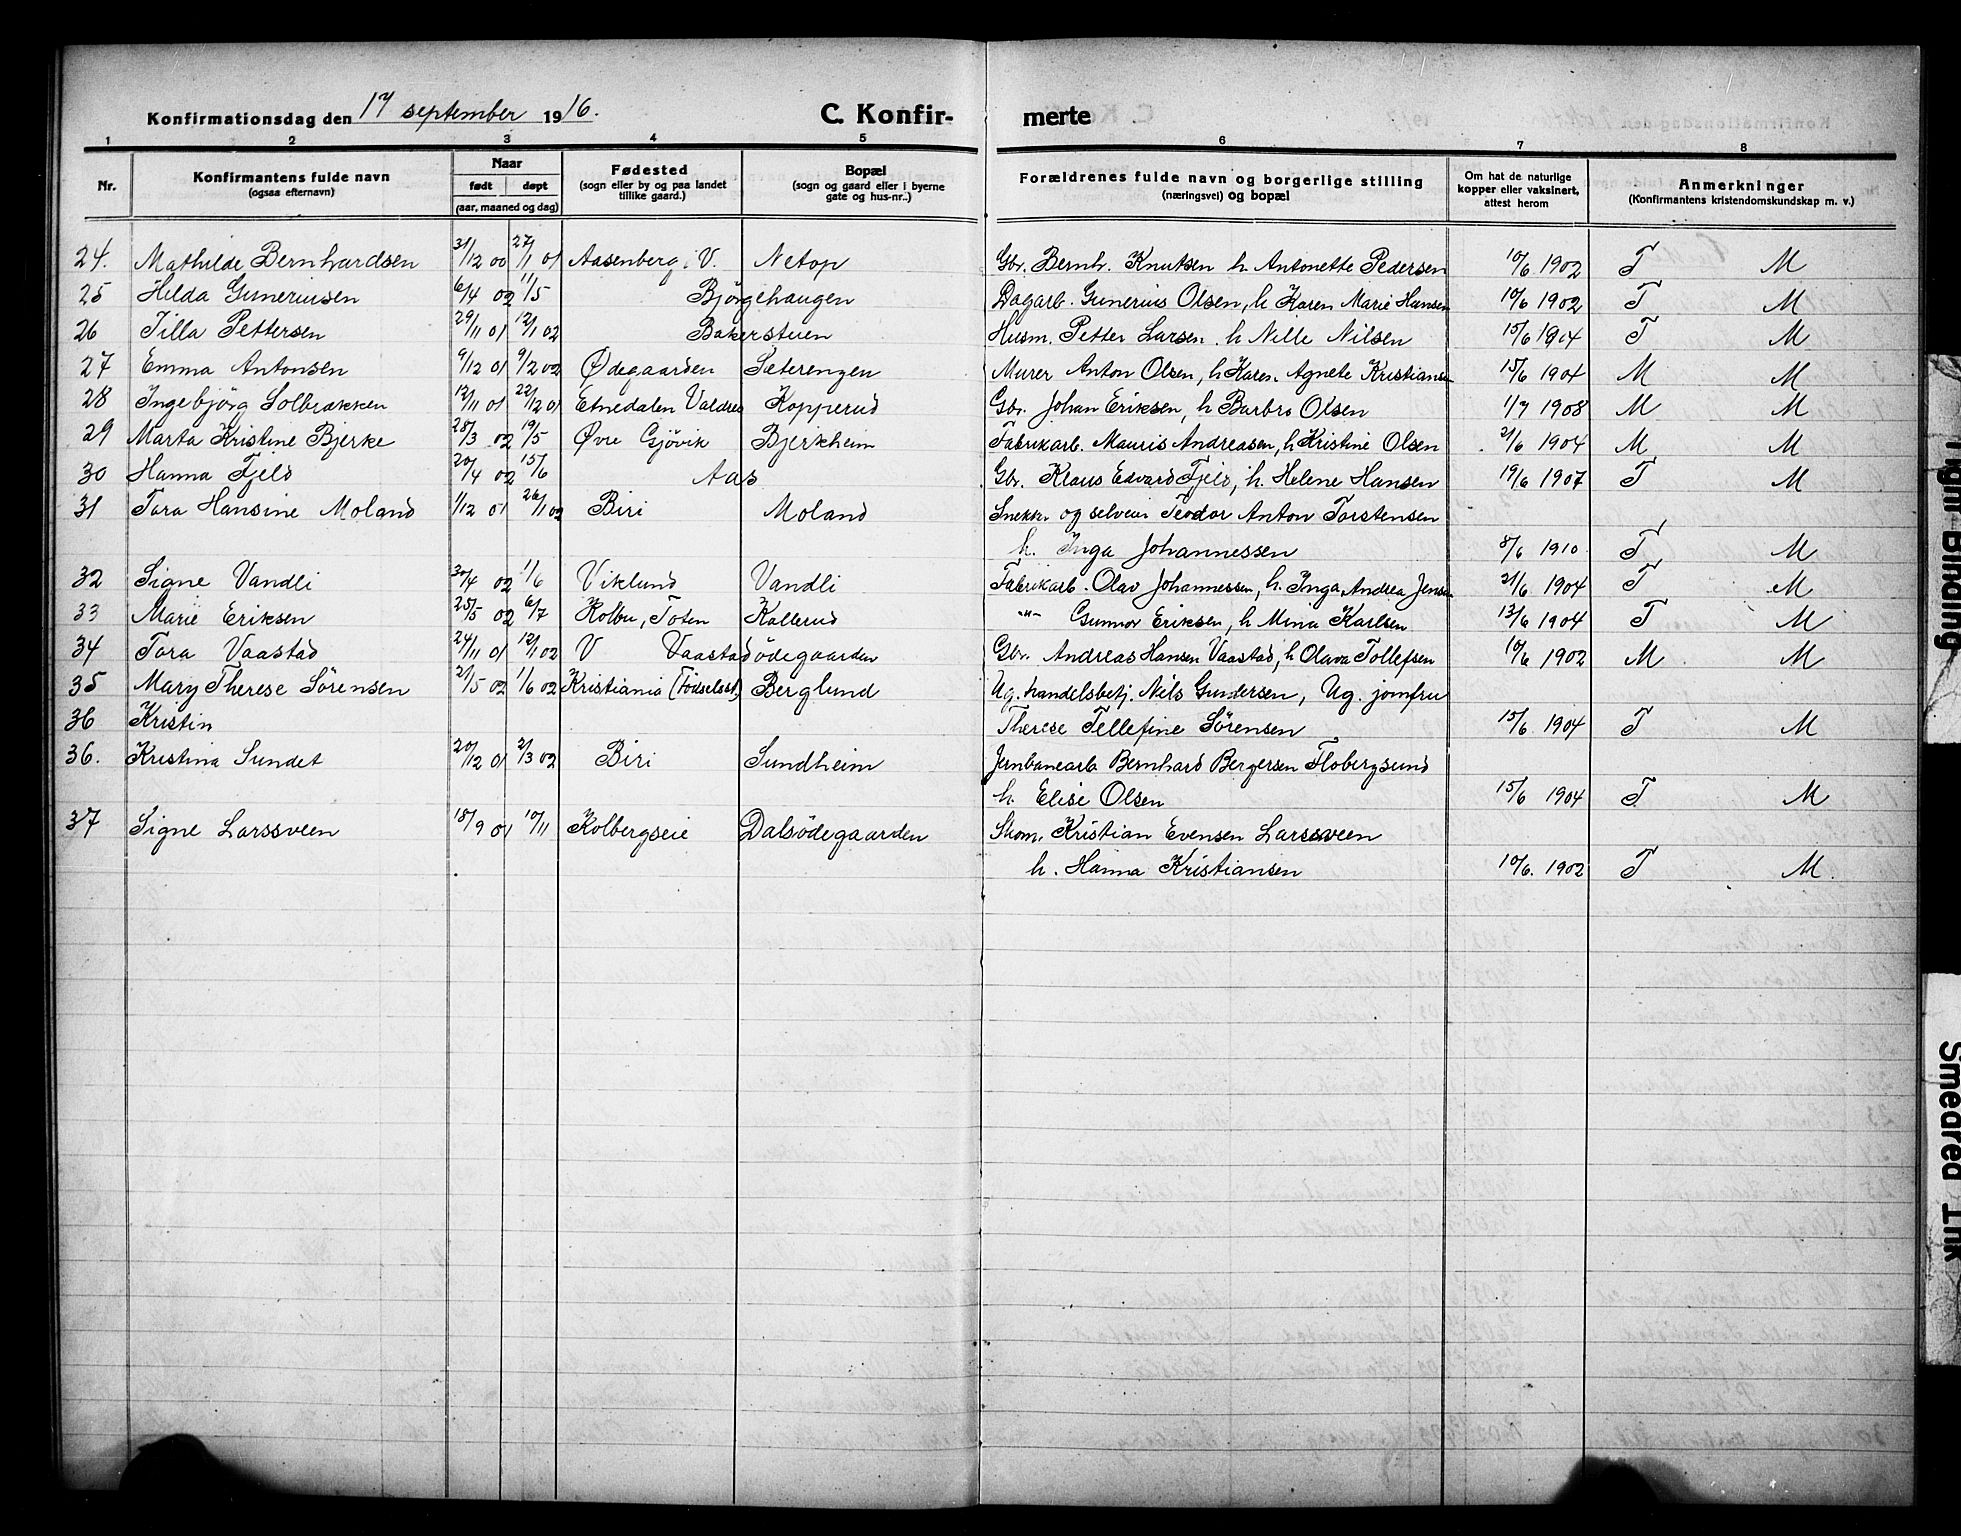 Konfirmationsdag den 17 september 1916. C. Konfir- merte
1 2 3 4 5 6 7 8
Nr. Konfirmantens fulde navn (ogsaa efternavn) Naar født døpt (aar, maaned og dag) Fødested (sogn eller by og paa landet tillike gaard.) Bopæl (sogn og gaard eller i byerne gate og hus-nr..) Forældrenes fulde navn og borgerlige stilling (næringsvei) og bopæl Om hat de naturlige kopper eller vaksinert, attest herom Anmerkninger (Konfirmantens kristendomskundskap m. v.)
24. Mathilde Bernhardsen 31/12 00 27/1 01 Aasenberg i V. Netop Gbr. Bernh. Knutsen h Antonette Pedersen 10/6 1902 T M
25 Hilda Gunerussen 6/4 02 11/5 Björgehaugen Dagarb. Gunerius Olsen, h Karen Marie Hansen 10/6 1902 T M
26 Tilla Pettersen 29/11 01 12/1 02 Bakerstuen Husm. Petter Larsen. h Nille Nilsen 15/6 1904 T M
27 Emma Antonsen 9/12 01 9/2 02 Ødegaarden Sæterengen Murer Anton Olsen, h Karen Agnete Kristiansen 15/6 1904 M M
28 Ingebjörg Solbrækken 12/11 01 22/12 01 Etnedalen Valdres Kopperud Gbr. Johan Eriksen, h Barbro Olsen 1/7 1908 M M
29 Marta Kristine Bjerke 28/3 02 19/5 Øvre Gjövik Bjerkheim Fabrikarb. Mauris Andreasen, h Kristine Olsen 21/6 1904 M M
30 Hanna Fjeld 20/4 02 15/6 Aas Gbr. Klaus Edvard Fjeld, h. Helene Hansen 19/6 1907 T M
31 Tora Hansine Moland 1/12 01 26/1 02 Biri Moland Snekker og selveier Teodor Anton Torstensen
h. Inga Johannessen 8/6 1910 T M
32 Signe Vandli 30/4 02 1/6 Viklund Vandli Fabrikarb. Olav Johannessen, h. Inga Andrea Jensen 21/6 1904 T M
33 Marie Eriksen 25/5 02 6/7 Kolbu, Toten Kallerud -"- Gunnar Eriksen, h Mina Karlsen 13/6 1904 T M
34 Tora Vaastad 24/11 01 12/1 02 V Vaastadödegaarden Gbr. Andreas Hansen Vaastad, h Olava Tollefsen 10/6 1902 M M
35 Mary Therese Sörensen 21/5 02 1/6 02 Kristiania (Födselsst.) Berglund Ug. handelsbetj. Nils Gundersen, Ug. jomfru
36 Kristin Therese Tellefine Sörensen 15/6 1904 T M
36. Kristina Sundet 20/12 01 2/3 02 Biri Sundheim Jernbanearb Bernhard Bergersen Flobergsund
h. Elise Olsen 15/6 1904 T M
37 Signe Larssveen 18/9 01 10/11 Kolbergseie Dalsödegaarden Skom. Kristian Evensen Larssveen
h. Hanna Kristiansen 10/6. 1902 T M.
Tight Binding
Smeared Ink